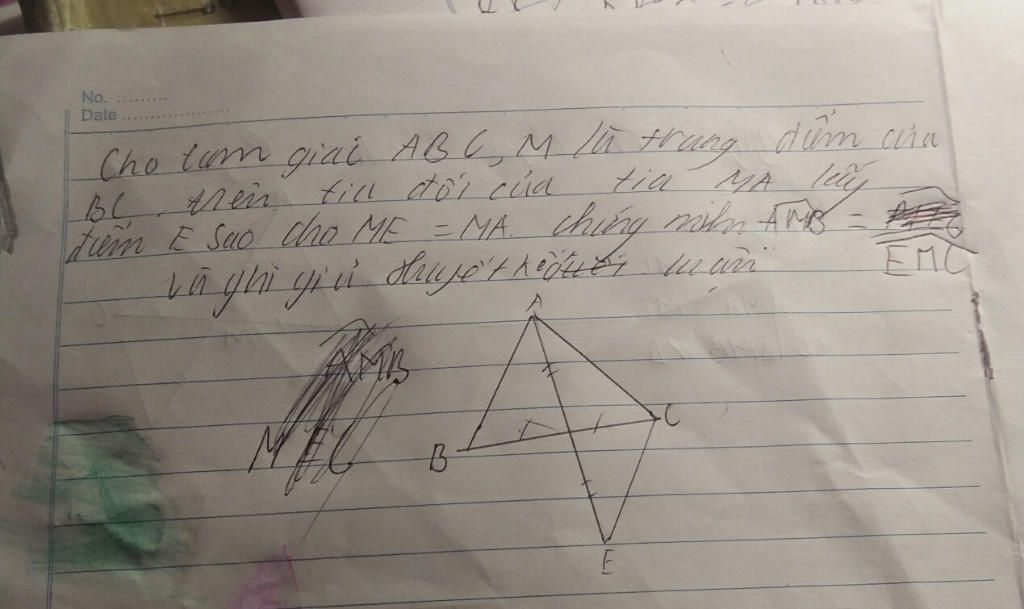 No. .........
Date ......................
Cho tam giác ABC, M là trung điểm của
BC, trên tia đối của tia MA lấy
điểm E sao cho ME = MA. chứng minh AMB =
EMC
và ghi giả thuyết kết luận
A
AMB
MEC
B
C
E